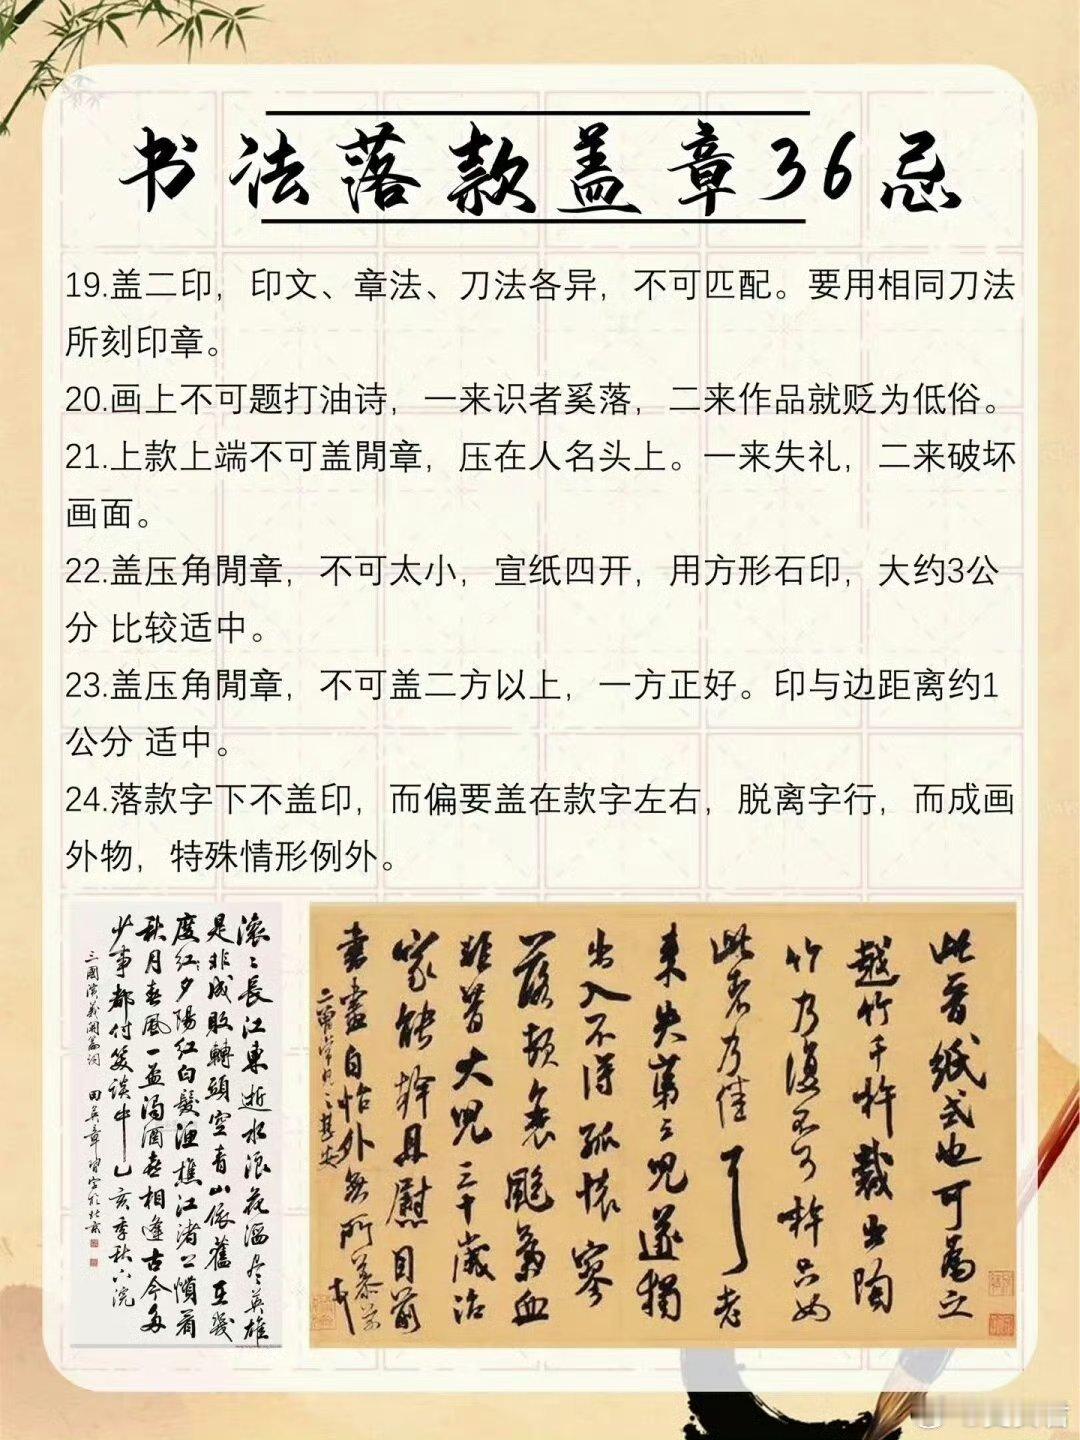 书法落款盖章36忌
19.盖二印，印文、章法、刀法各异，不可匹配。要用相同刀法
所刻印章。
20.画上不可题打油诗，一来识者奚落，二来作品就贬为低俗。
21.上款上端不可盖閒章，压在人名头上。一来失礼，二来破坏
画面。
22.盖压角閒章，不可太小，宣纸四开，用方形石印，大约3公
分 比较适中。
23.盖压角閒章，不可盖二方以上，一方正好。印与边距离约1
公分 适中。
24.落款字下不盖印，而偏要盖在款字左右，脱离字行，而成画
外物，特殊情形例外。
滚〻長江東逝水浪花淘尽英雄
是非成敗轉頭空青山依舊在幾
度紅夕陽紅白髮漁樵江渚上慣看
秋月春風一壶濁酒喜相逢古今多
少事都付笑談中乙亥季秋六浣
三國演義開篇詞 田英章書於北京
此晋紙式也可為立
越竹千杵裁出陶
竹乃復不可杵只如
此者乃佳耳老
来失第三兒遂獨
出入不得孤懷寥
落頓衰飈氣血
非昔大兒三十歲治
家能幹且慰目前
書畫自怡外無所慕